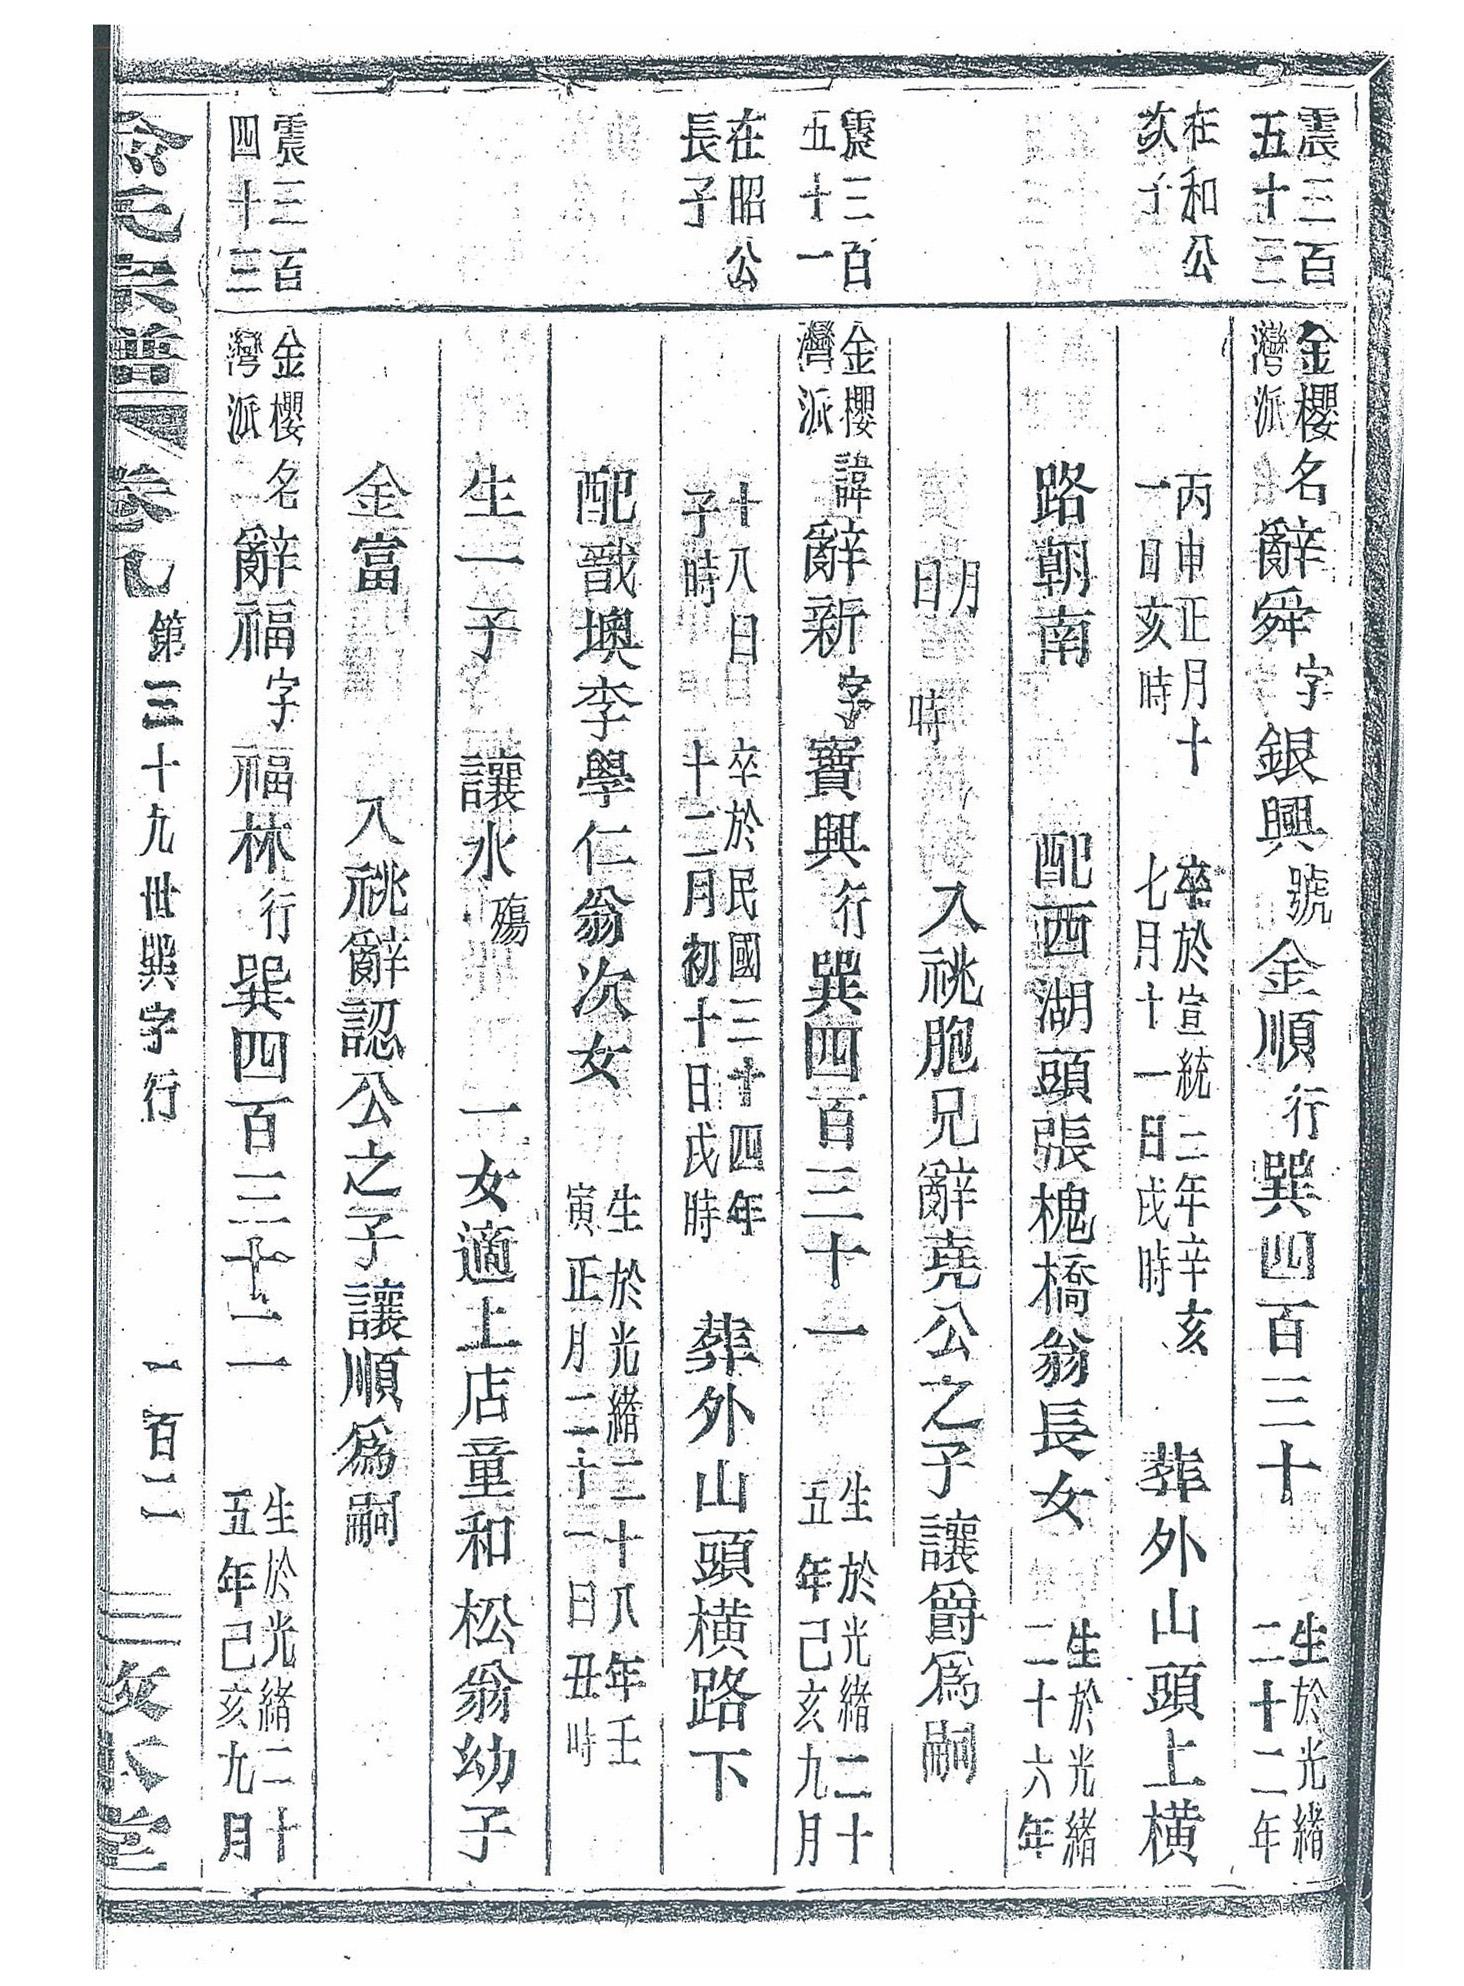 震三百
五十三
金櫻
灣派
名辭舜字銀興號金順行巽四百三十
生於光緒
二十二年
在和公
次子
丙申正月十
一日亥時
卒於宣統三年辛亥
七月十一日戌時
葬外山頭上橫
路朝南 配西湖頭張槐橋翁長女
生於光緒
二十六年
月
日 時
入祧胞兄辭堯公之子讓爵為嗣
震三百
五十一
金櫻
灣派
諱辭新字寶興行巽四百三十一
生於光緒二十
五年己亥九月
在昭公
長子
十八日
子時
卒於民國三十四年
十二月初十日戌時
葬外山頭橫路下
配戬墺李學仁翁次女
生於光緒二十八年壬
寅正月二十一日丑時
生一子 讓水殤 一女適上店童和松翁幼子
金富 入祧辭認公之子讓順為嗣
震三百
四十三
金櫻
灣派
名辭福字福林行巽四百三十二
生於光緒二十
五年己亥九月
俞氏宗譜 卷九 第三十九世巽字行 一百二